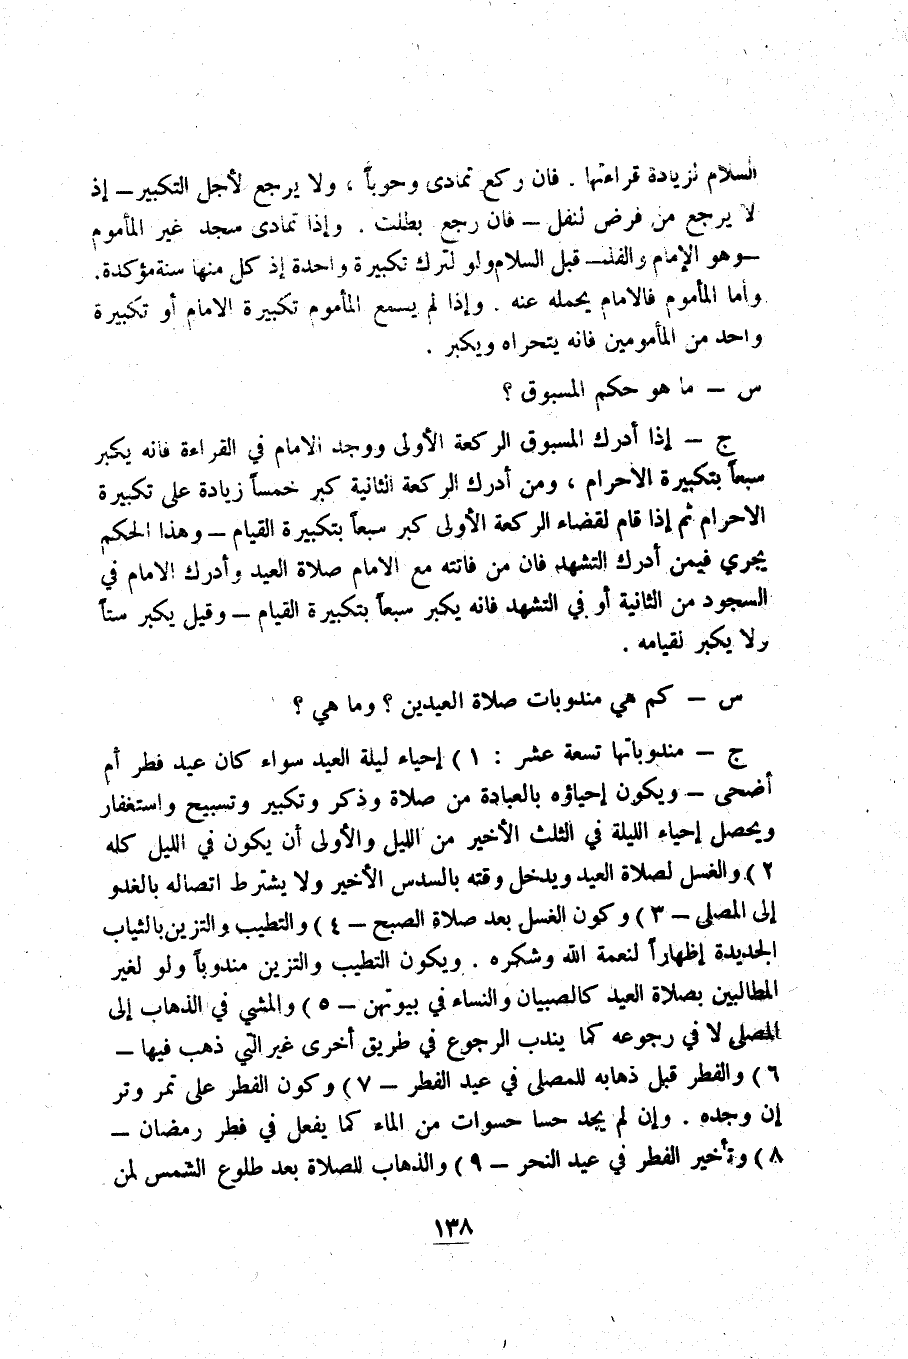 السلام لزيادة قراءتها . فان ركع تمادى وجوباً ، ولا يرجع لأجل التكبير ــ إذ
لا يرجع من فرض لنفل ــ فان رجع بطلت . وإذا تمادى سجد غير المأموم
ــ وهو الإمام والفذ ــ قبل السلام ولو لترك تكبيرة واحدة إذ كل منها سنة مؤكدة.
وأما المأموم فالامام يحمله عنه . وإذا لم يسمع المأموم تكبيرة الامام أو تكبيرة
واحد من المأمومين فانه يتحراه ويكبر .
س ــ ما هو حكم المسبوق ؟
ج ــ إذا أدرك المسبوق الركعة الأولى ووجد الامام في القراءة فانه يكبر
سبعاً بتكبيرة الاحرام ، ومن أدرك الركعة الثانية كبر خمساً زيادة على تكبيرة
الاحرام ثم إذا قام لقضاء الركعة الأولى كبر سبعاً بتكبيرة القيام ــ وهذا الحكم
يجري فيمن أدرك التشهد فان من فاتته مع الامام صلاة العيد وأدرك الامام في
السجود من الثانية أو في التشهد فانه يكبر سبعاً بتكبيرة القيام ــ وقيل يكبر ستاً
ولا يكبر لقيامه .
س ــ كم هي مندوبات صلاة العيدين ؟ وما هي ؟
ج ــ مندوباتها تسعة عشر : ١ ) إحياء ليلة العيد سواء كان عيد فطر أم
أضحى ــ ويكون إحياؤه بالعبادة من صلاة وذكر وتكبير وتسبيح واستغفار
ويحصل إحياء الليلة في الثلث الأخير من الليل والأولى أن يكون في الليل كله
٢ ) والغسل لصلاة العيد ويدخل وقته بالسدس الأخير ولا يشترط اتصاله بالغدو
إلى المصلى ــ ٣ ) وكون الغسل بعد صلاة الصبح ــ ٤ ) والتطيب والتزين بالثياب
الجديدة إظهاراً لنعمة الله وشكره . ويكون التطيب والتزين مندوباً ولو لغير
المطالبين بصلاة العيد كالصبيان والنساء في بيوتهن ــ ٥ ) والمشي في الذهاب إلى
المصلى لا في رجوعه كما يندب الرجوع في طريق أخرى غير التي ذهب فيها ــ
٦ ) والفطر قبل ذهابه للمصلى في عيد الفطر ــ ٧ ) وكون الفطر على تمر وتر
إن وجده . وإن لم يجد حسا حسوات من الماء كما يفعل في فطر رمضان ــ
٨ ) وتأخير الفطر في عيد النحر ــ ٩ ) والذهاب للصلاة بعد طلوع الشمس لمن
١٣٨